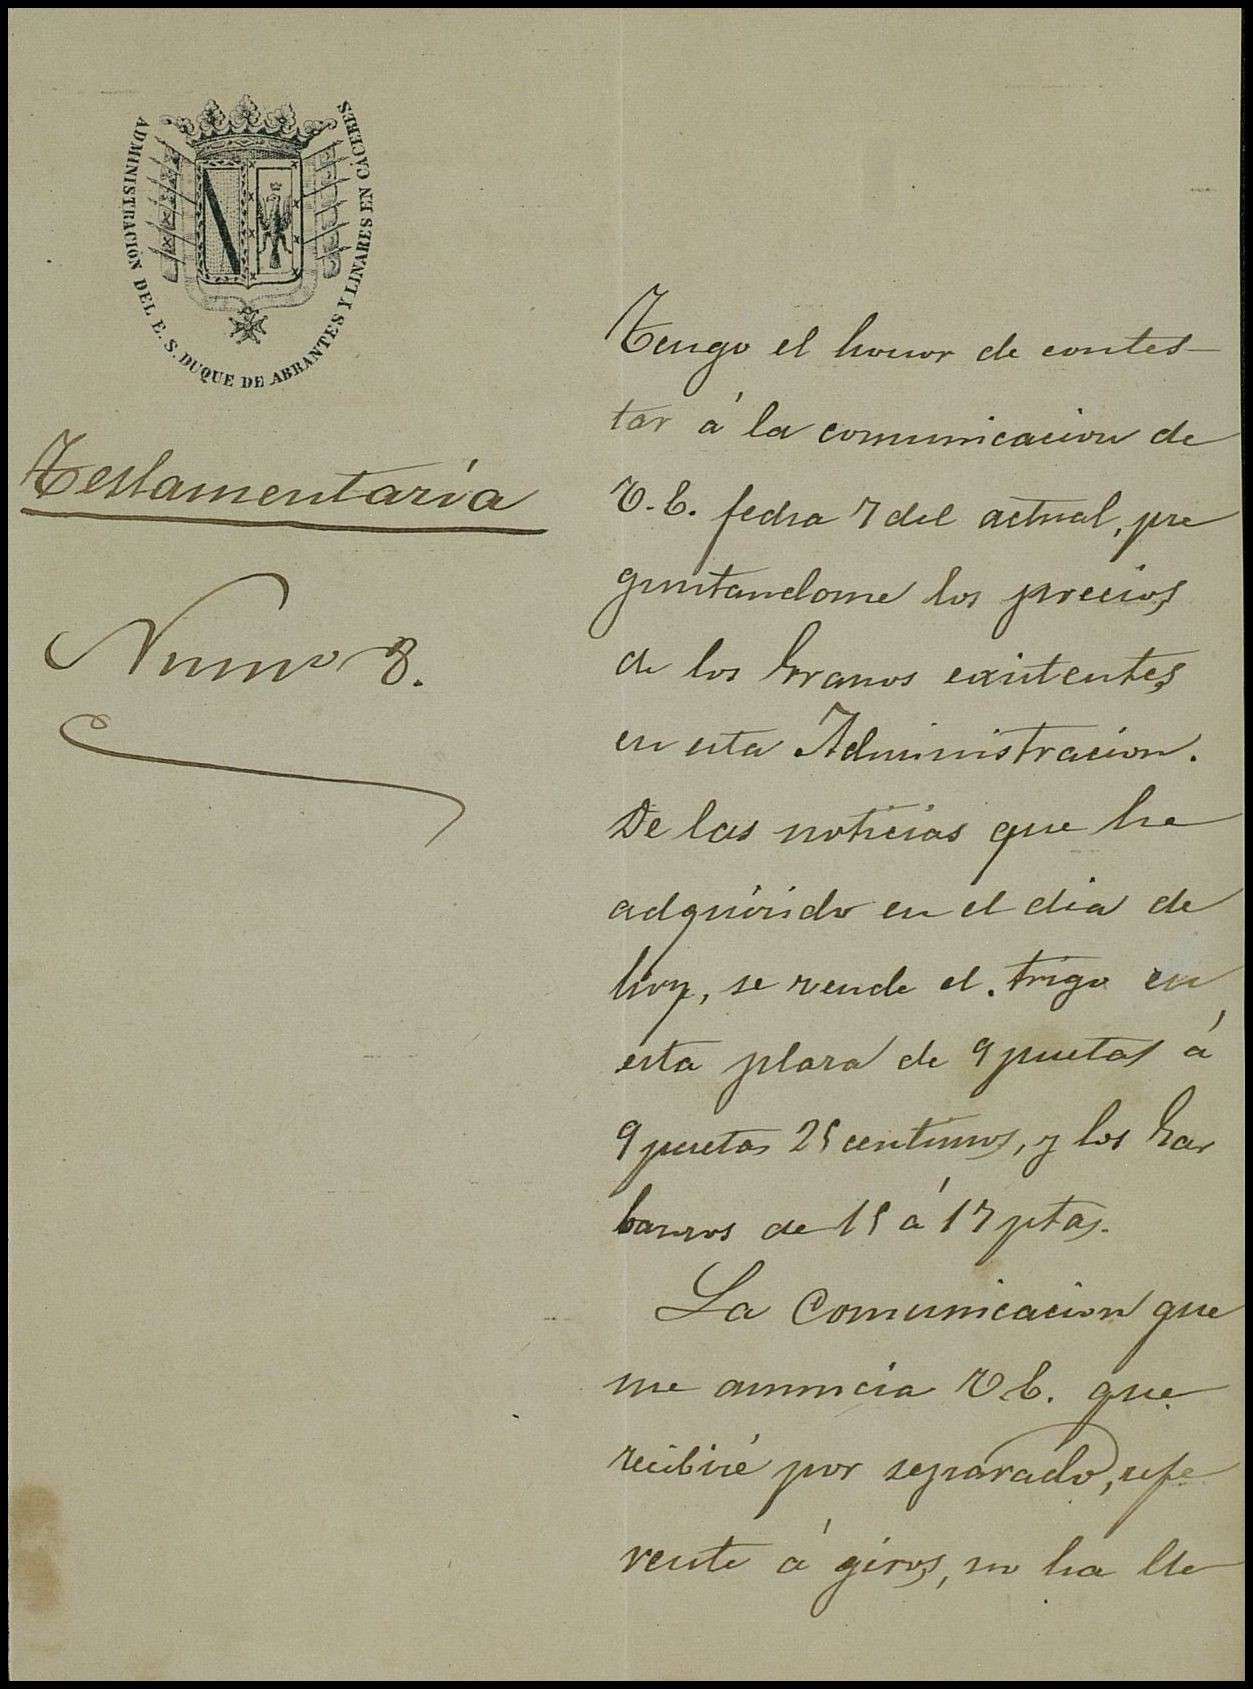 ADMINISTRACIÓN DEL E. S. DUQUE DE ABRANTES Y LINARES EN CÁCERES
Testamentaría
Numo 8.
Tengo el honor de contes-
tar á la comunicacion de
V. E. fecha 7 del actual, pre
guntandome los precios
de los Granos existentes
en esta Administracion.
De las noticias que he
adquirido en el dia de
hoy, se vende el trigo en
esta plaza de 9 pesetas á
9 pesetas 25 centimos, y los Gar
banzos de 15 á 17 ptas.
La Comunicacion que
me anuncia V E. que
recibiré por separado, refe
rente á giros, no ha lle